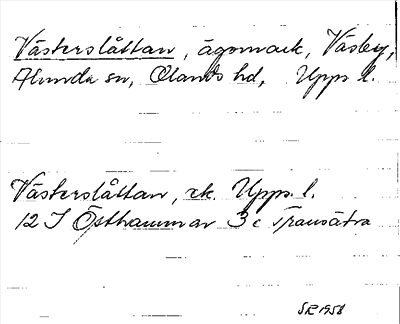 Västerslåttan, ägomark, Väsby,
Alunda sn, Olands hd, Upps l.
Västerslåttan, ek. Upps. l.
12 I Östhammar 3 c Transätra
SR 1958